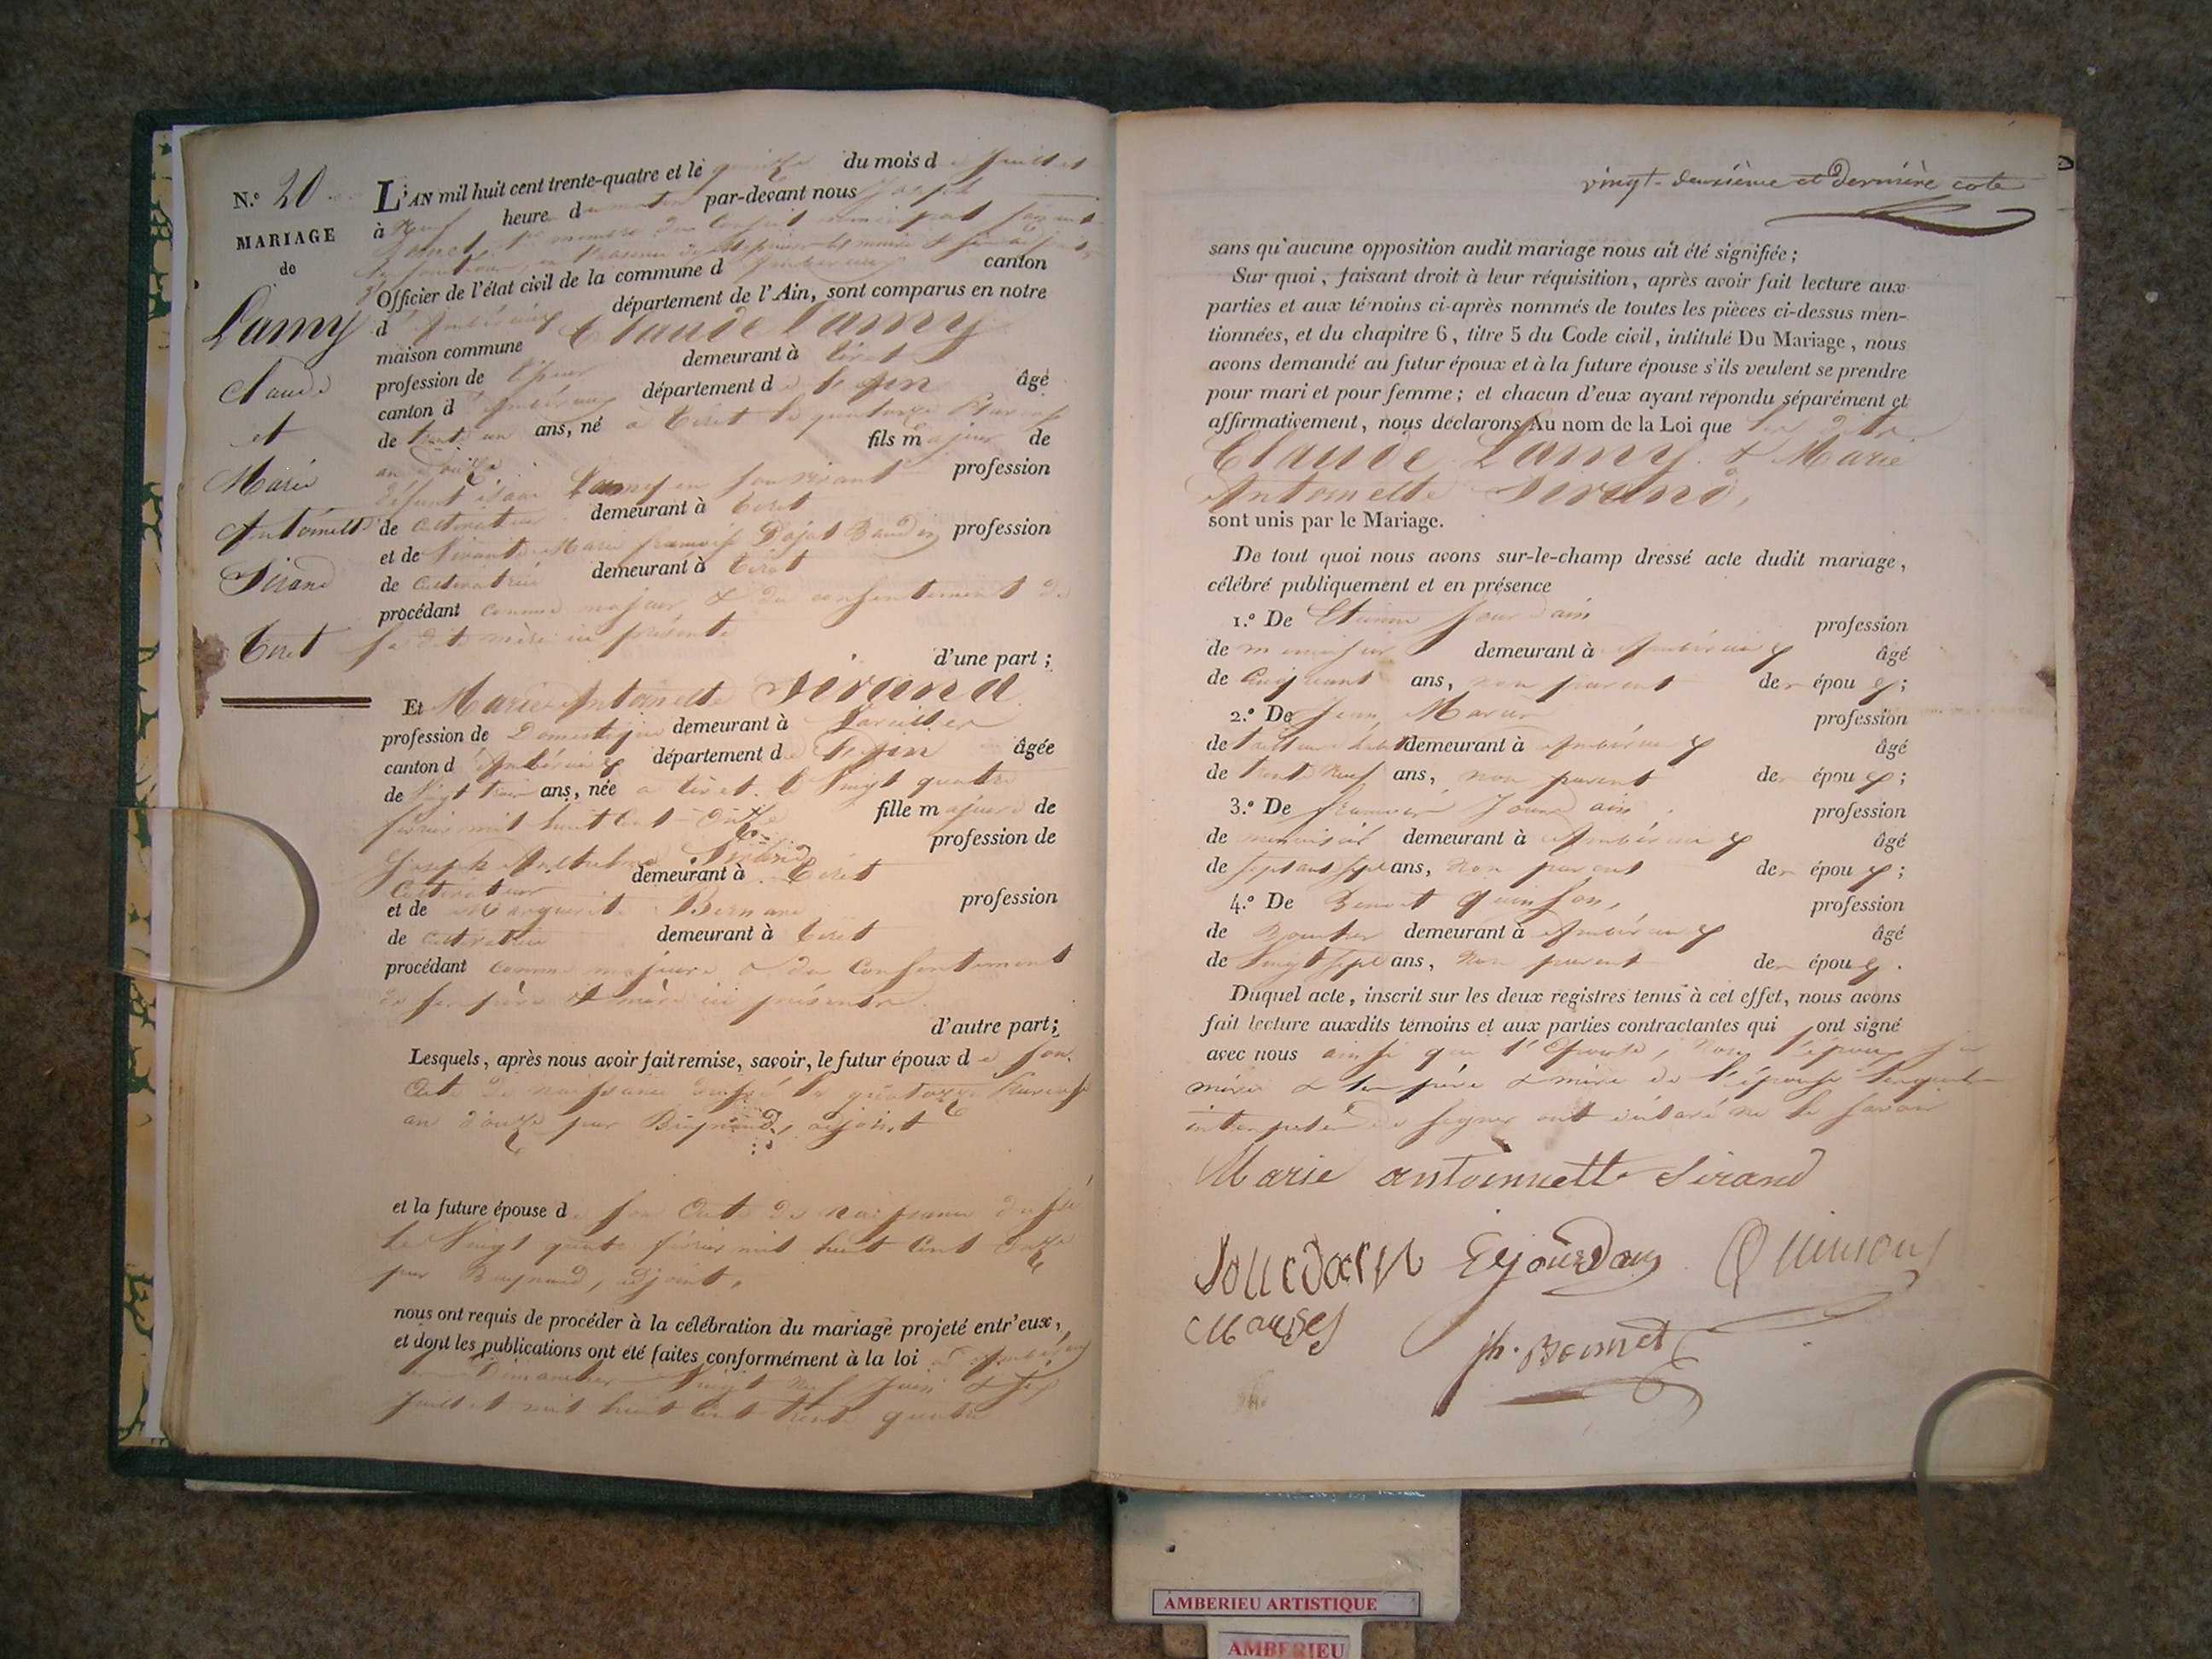 N.º 20
MARIAGE
de
Lamy
Claude
et
Marie
Antoinette
Sirand
Tiret
L'AN mil huit cent trente-quatre et le quinze du mois de Juillet
à neuf heure du matin par-devant nous Joseph
Bonnet, 1er membre du Conseil municipal faisant
Officier de l'état civil de la commune d'Ambérieux canton
d'Ambérieux département de l'Ain, sont comparus en notre
maison commune Claude Lamy
profession de demeurant à Tiret
canton d'Ambérieux département de l'Ain âgé
de trente un ans, né à Tiret le quatorze
an douze fils majeur de
défunt Lamy en son vivant profession
de Cultivateur demeurant à Tiret
et de vivante Marie profession
de Cultivatrice demeurant à Tiret
procédant comme majeur & du consentement de
sa dite mère ici présente
d'une part ;
Et Marie Antoinette Sirand
profession de Domestique demeurant à
canton d'Ambérieux département de l'Ain âgée
de vingt trois ans, née à Tiret le vingt quatre
février mil huit cent onze fille majeure de
Joseph Anthelme Sirand profession de
Cultivateur demeurant à Tiret
et de Marguerite Bernard profession
de Cultivatrice demeurant à Tiret
procédant comme majeure & du Consentement
de ses père & mère ici présents
d'autre part ;
Lesquels, après nous avoir fait remise, savoir, le futur époux de son
Acte de naissance dressé le quatorze
an douze par adjoint
et la future épouse de son Acte de naissance dressé
le vingt quatre février mil huit cent onze
par adjoint,
nous ont requis de procéder à la célébration du mariage projeté entr'eux,
et dont les publications ont été faites conformément à la loi à Ambérieux
les Dimanches vingt neuf Juin & six
Juillet mil huit cent trente quatre
vingt-deuxième et dernière cote
sans qu'aucune opposition audit mariage nous ait été signifiée ;
Sur quoi, faisant droit à leur réquisition, après avoir fait lecture aux
parties et aux témoins ci-après nommés de toutes les pièces ci-dessus men-
tionnées, et du chapitre 6, titre 5 du Code civil, intitulé Du Mariage, nous
avons demandé au futur époux et à la future épouse s'ils veulent se prendre
pour mari et pour femme ; et chacun d'eux ayant répondu séparément et
affirmativement, nous déclarons Au nom de la Loi que les dits
Claude Lamy & Marie
Antoinette Sirand,
sont unis par le Mariage.
De tout quoi nous avons sur-le-champ dressé acte dudit mariage,
célébré publiquement et en présence
1.º De Etienne Jourdain profession
de menuisier demeurant à Ambérieux âgé
de Cinquante ans, non parent des époux ;
2.º De Jean profession
de tailleur d'habits demeurant à Ambérieux âgé
de trente neuf ans, non parent des époux ;
3.º De François Jourdain profession
de menuisier demeurant à Ambérieux âgé
de ans, non parent des époux ;
4.º De Benoit Quinson, profession
de demeurant à Ambérieux âgé
de vingt sept ans, non parent des époux.
Duquel acte, inscrit sur les deux registres tenus à cet effet, nous avons
fait lecture auxdits témoins et aux parties contractantes qui ont signé
avec nous ainsi que l'épouse, non l'époux sa
mère & les père & mère de l'épouse lesquels
interpellés de signer ont déclaré ne le savoir
Marie antoinette Sirand
Jourdain Ejourdain Quinson
jh. Bonnet
AMBERIEU ARTISTIQUE
AMBERIEU